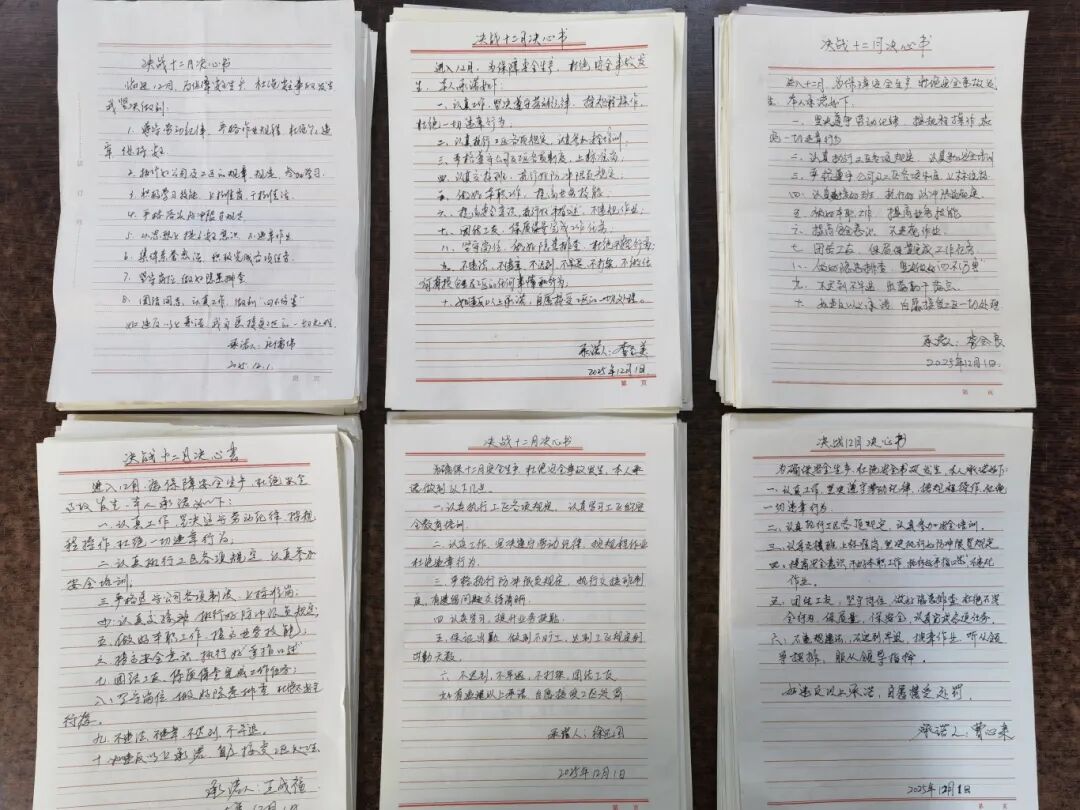 决战十二月决心书
临近12月,为保障安全生产,杜绝安全事故发生
我坚决做到:
1. 遵守劳动纪律,严格作业规程,杜绝个人违
章保持好
2. 执行公司及工区的规章规定,参加学习.
3. 积极学习技能,上标准岗,干标准活.
4. 严格落实防冲限员规定
5. 从思想上提高安全意识,不违章作业
6. 集体荣誉意识,积极完成各项任务.
7. 坚守岗位,做好隐患排查
8. 团结同志,认真工作,做到“四不伤害”
如违反以上承诺,我自愿接受工区的一切处理.
承诺人:
2025.12.1.
决战十二月决心书
进入12月,为保障安全生产,杜绝安全事故发
生,本人承诺如下:
一、认真工作,坚决遵守劳动纪律,按规程操作,
杜绝一切违章行为.
二、认真执行工区各项规定,认真参加安全培训.
三、严格遵守公司及工区各项制度,上标准岗.
四、认真交接班,执行好防冲限员规定.
五、做好本职工作,提高业务技能
六、提高安全意识,执行好手指口述,不违犯作业;
七、团结工友,保质保量完成工作任务
八、坚守岗位,做好隐患排查,杜绝不安全行为;
九、不违法、不违章、不迟到、不早退、不打架、不做任
何有损
十、如违反以上承诺,自愿接受工区的一切处理。
承诺人:李 美
2025年12月1日.
第 页
决战十二月决心书
进入十二月,为保障安全生产 杜绝安全事故发
生.本人承诺如下.
一、坚决遵守劳动纪律 按规程操作 杜
绝一切违章行为
二、认真执行工区各项规定,认真参加安全培训
三、严格遵守公司及工区各项制度,上标准岗
四、认真交接班,执行好防冲限员规定
五、做好本职工作,提高业务技能
六、提高安全意识,不违章作业
七、团结工友,保质保量完成工作任务
八、做好隐患排查,坚决做好“四不伤害”
九、不迟到不早退,出满勤干满点
十、如违反以上承诺,自愿接受工区一切处理
承诺人:李会良
2025年12月1日.
第 页
决战十二月决心书
进入12月,为保障安全生产,杜绝安全
事故发生,本人承诺如下:
一、认真工作,坚决遵守劳动纪律,按规
程操作,杜绝一切违章行为;
二、认真执行工区各项规定,认真参加
安全培训.
三、严格遵守公司各项制度,上标准岗;
四、认真交接班,执行好防冲限员规定;
五、做好本职工作,提高业务技能;
六、提高安全意识,执行好“手指口述”
七、团结工友,保质保量完成工作任务;
八、坚守岗位,做好隐患排查,杜绝不安全
行为.
九、不违法、不违章、不迟到、不早退.
十、如违反以上承诺,自愿接受工区处理
承诺人:王成福
年12月1日
决战十二月决心书
为确保十二月安全生产,杜绝安全事故发生,本人承
诺做到以下几点.
一、认真执行工区各项规定,认真学习工区的安
全教育培训.
二、认真工作,坚决遵守劳动纪律,按规程作业
杜绝违章行为.
三、严格执行防冲限员规定,执行交接班制
度,有遗留问题交待清晰.
四、认真学习,提升业务技能
五、保证出勤,做到不旷工,达到工区规定到
出勤天数.
六、不迟到、不早退,不打架,团结工友
如有违规以上承诺,自愿接受工区处罚
承诺人:
2025年12月1日
决战12月决心书
为确保安全生产,杜绝安全事故发生,本人承诺如下:
一、认真工作,坚决遵守劳动纪律,按规程操作,杜绝
一切违章行为.
二、认真执行工区各项规定,认真参加安全培训.
三、认真交接班,上标准岗,坚决执行好防冲限员规定
四、提高安全意识,做好本职工作,执行好手指口述,不违犯
作业.
五、团结工友,坚守岗位,做好隐患排查,杜绝不安
全行为,保质量,保安全,认真完成各项任务.
六、不违规违法,不迟到早退,按章作业,听从领
导安排,服从领导指挥.
如违反以上承诺,自愿接受处罚.
承诺人:曹心来
2025年12月1日